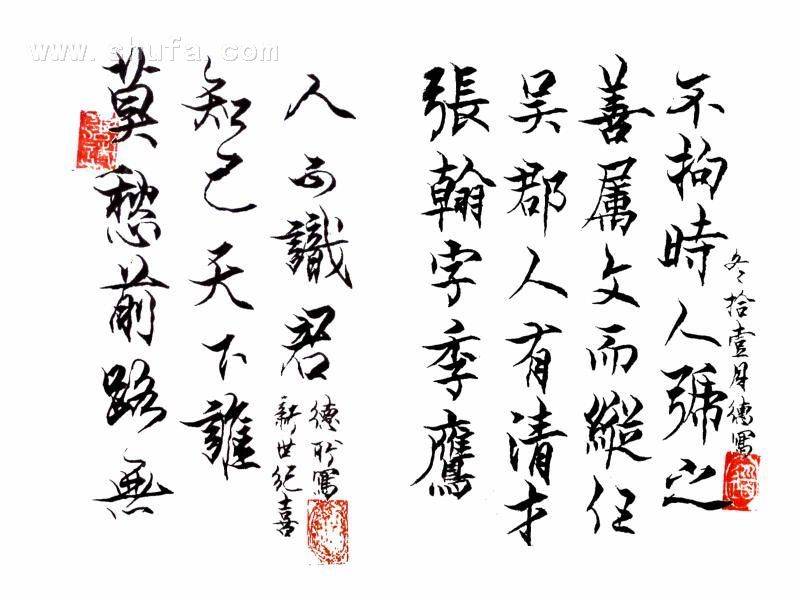 www.shufa.com
莫愁前路無
知己天下誰
人不識君
新世紀喜
德寫
張翰字季鷹
吳郡人有清才
善属文而縱任
不拘時人號之
冬拾壹月德寫